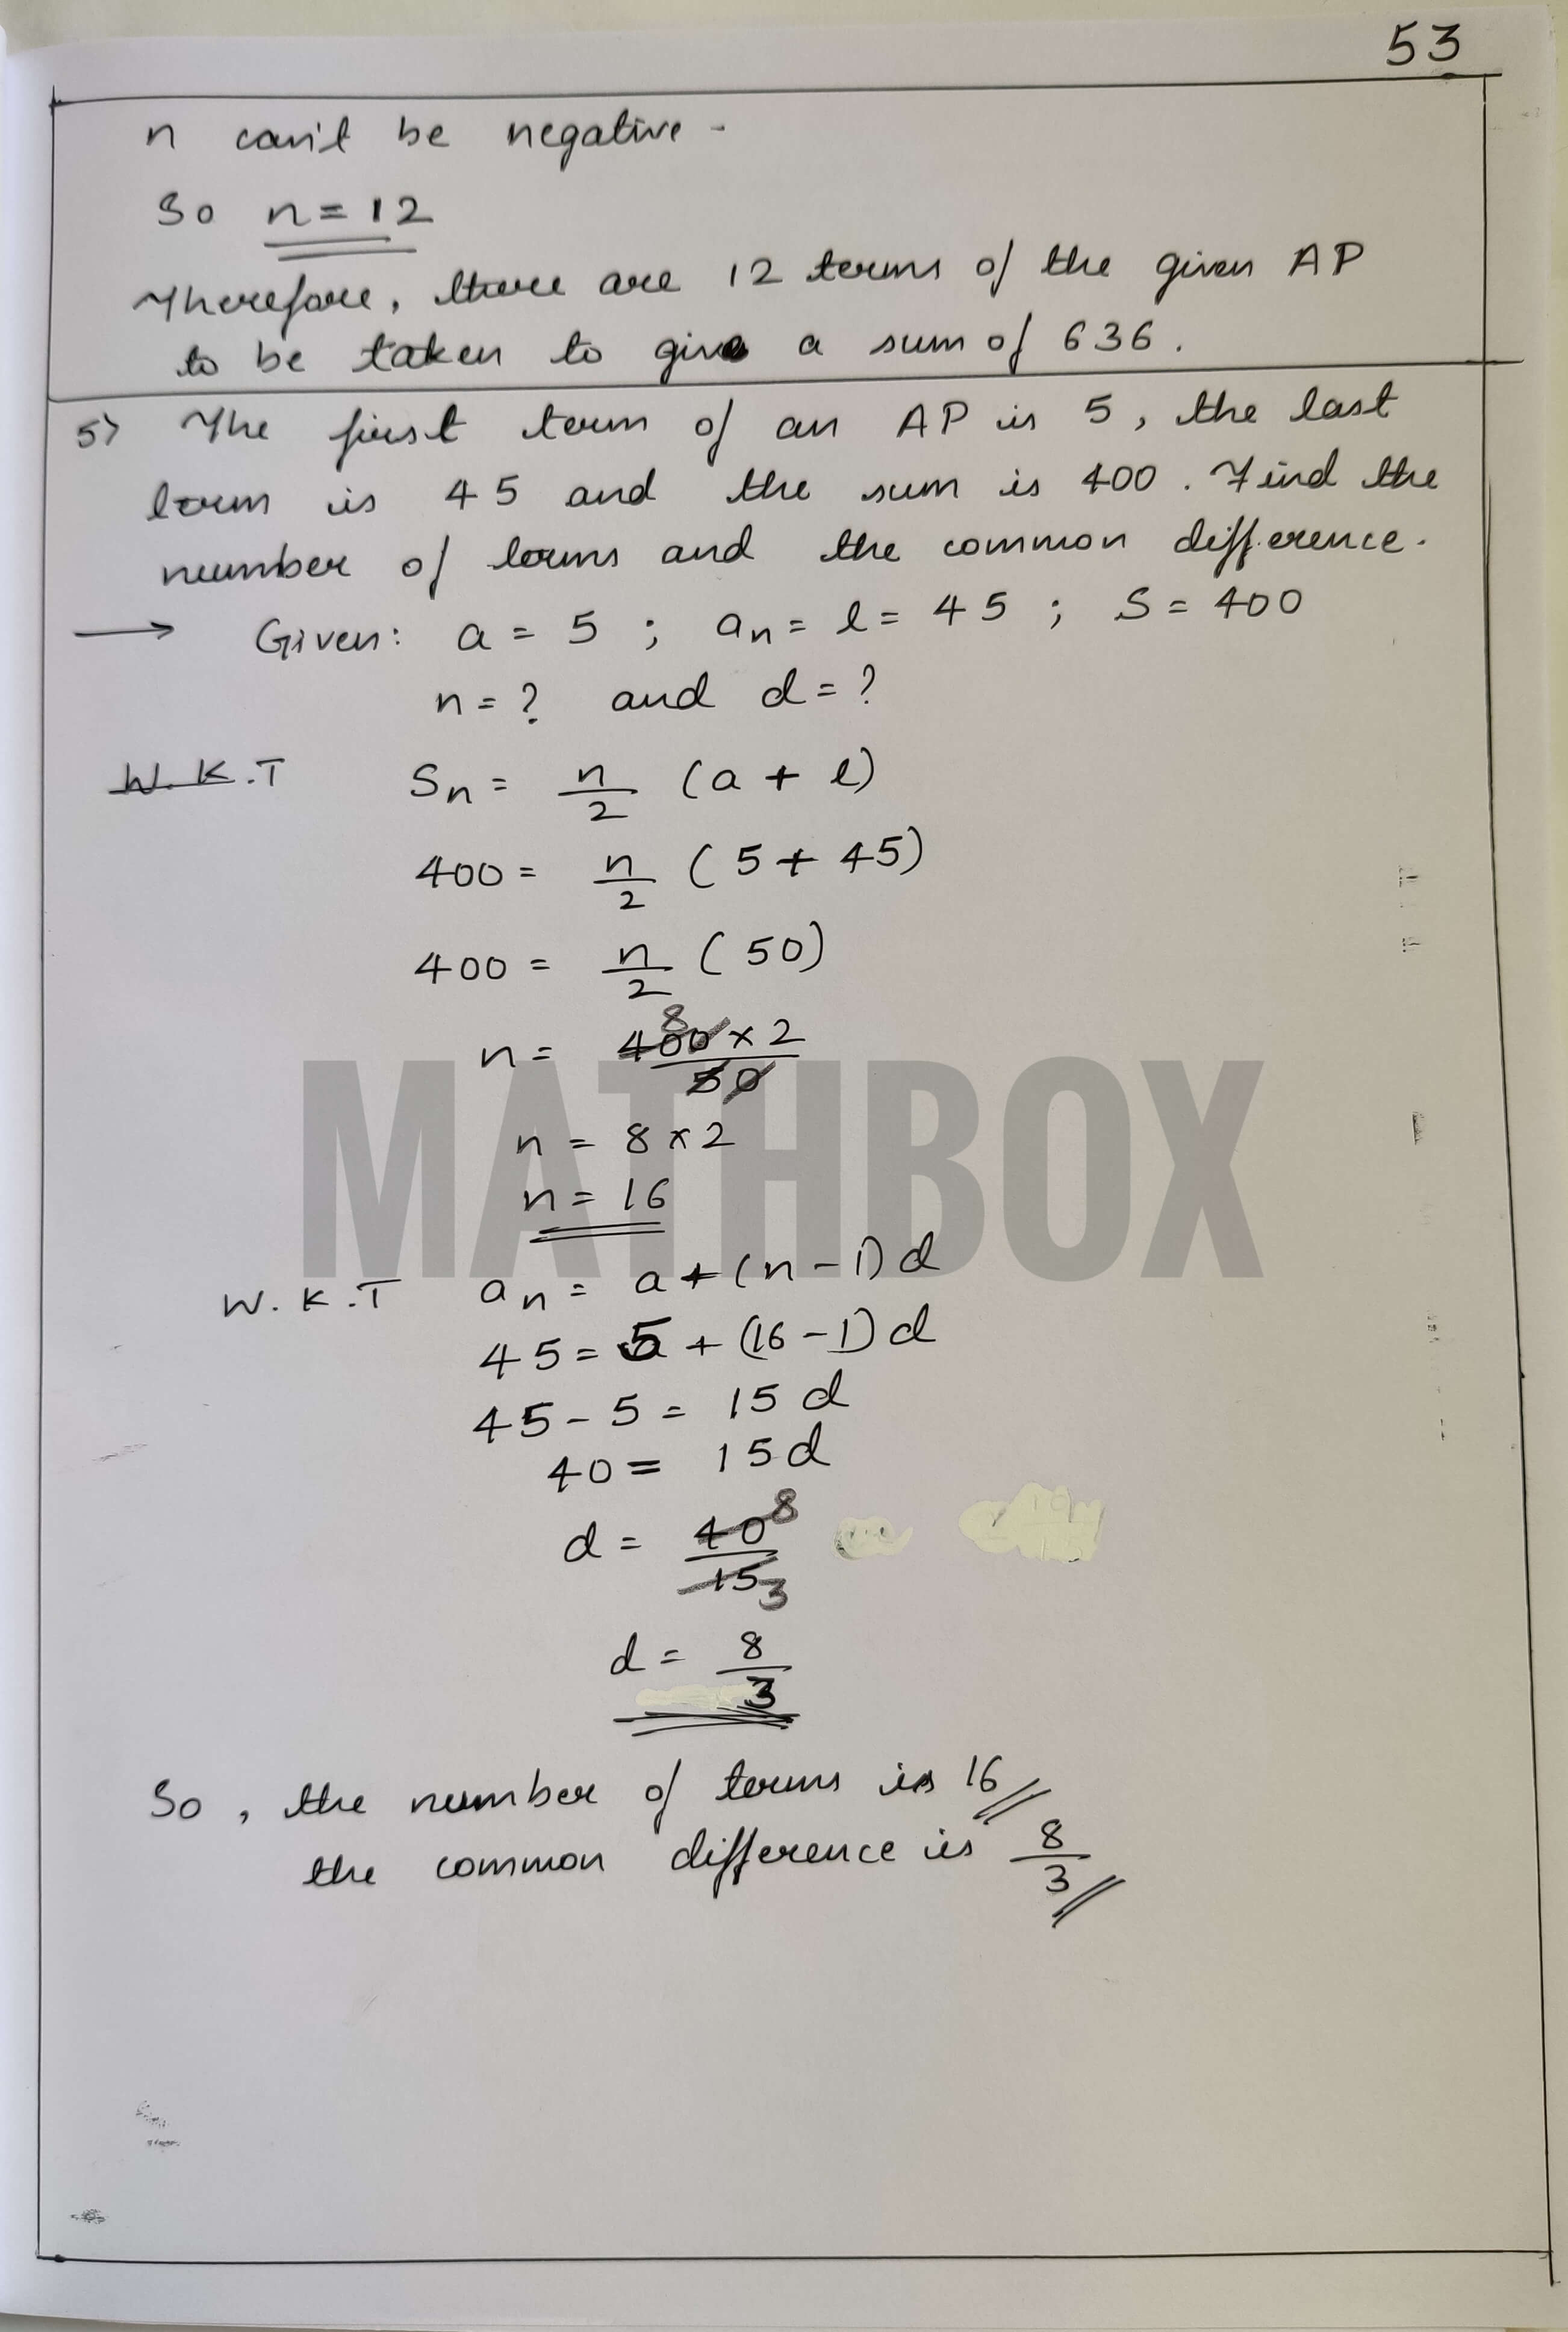 53
n can't be negative -
So n = 12
Therefore, there are 12 terms of the given AP
to be taken to give a sum of 636.
5) The first term of an AP is 5, the last
term is 45 and the sum is 400. Find the
number of terms and the common difference.
→ Given: a = 5 ; aₙ = l = 45 ; S = 400
n = ? and d = ?
W.K.T Sₙ = n/2 (a + l)
400 = n/2 (5 + 45)
400 = n/2 (50)
n = 400 × 2 / 50 8
n = 8 × 2
n = 16
MATHBOX
W.K.T aₙ = a + (n - 1) d
45 = 5 + (16 - 1) d
45 - 5 = 15 d
40 = 15 d
d = 40 8 / 15 3
d = 8/3
So, the number of terms is 16 //
the common difference is 8/3 //